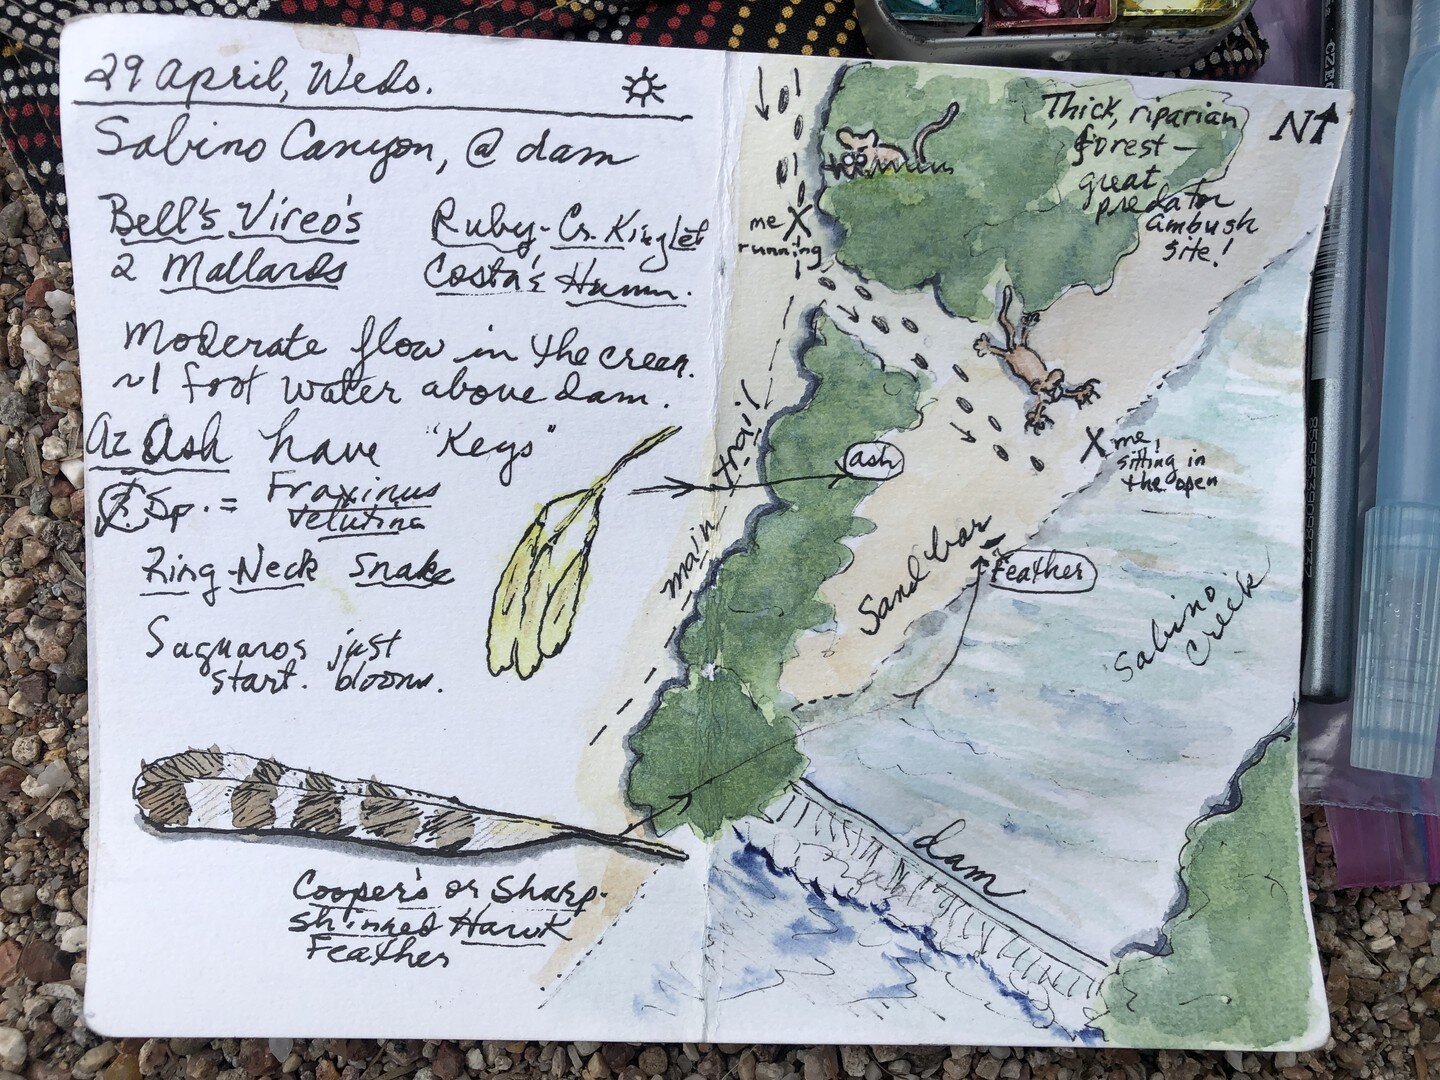 29 April, Weds.
Sabino Canyon, @ dam
Bell's Vireo's
2 Mallards
Ruby-Cr. Kinglet
Costa's Humm.
Moderate flow in the creek.
~1 foot water above dam.
Az Ash have "Keys"
Sp. = Fraxinus
velutina
Ring-Neck Snake
Saguaros just
start. blooms.
Cooper's or Sharp-
shinned Hawk
Feather
N↑
Thick, riparian
forest —
great
predator
ambush
site!
me X
running
ash
X me,
sitting in
the open
main trail
Sand bar
Feather
Sabino
Creek
dam